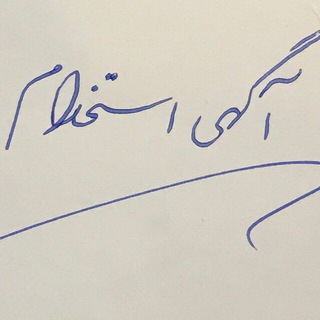 آگهی استخدام